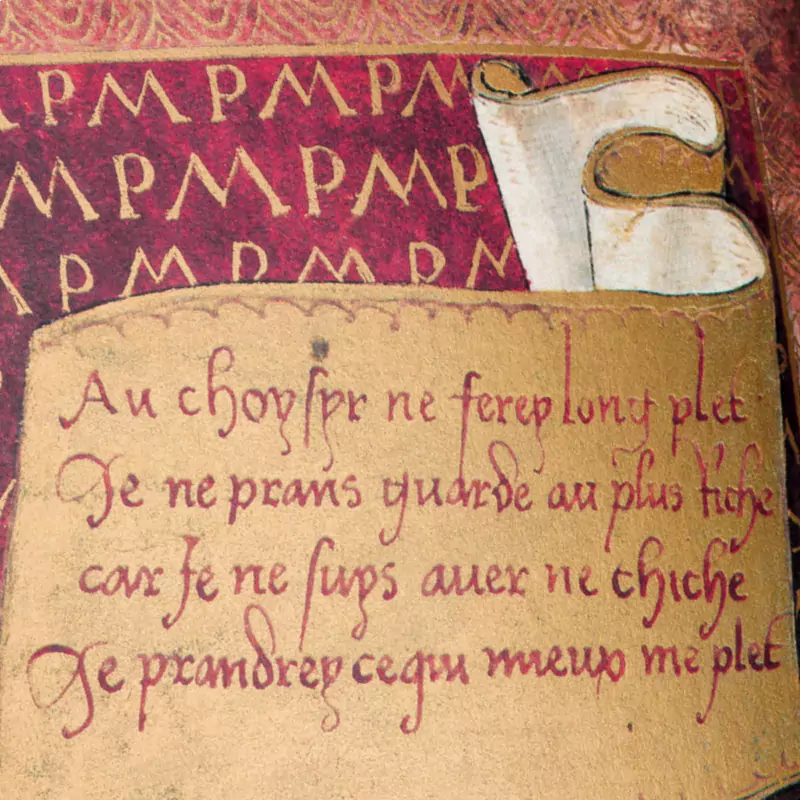 PMPMPM
MPMPMP
PMPMPM
Au choysyr ne ferey long plet
Je ne prans guarde au plus riche
car Je ne suys auer ne chiche
Je prandrey ce qui mieux me plet